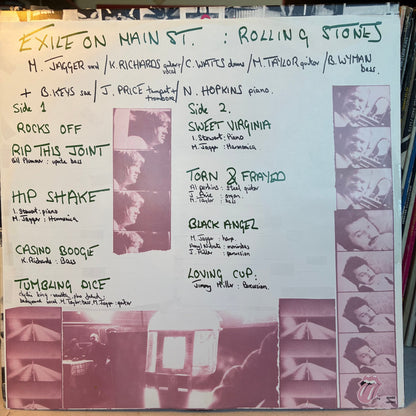 EXILE ON MAIN ST. : ROLLING STONES
M. JAGGER / K. RICHARDS guitar vocal / C. WATTS drums / M. TAYLOR guitar / B. WYMAN bass.
+ B. KEYS sax / J. PRICE trumpet & trombone / N. HOPKINS piano.
Side 1
ROCKS OFF
RIP THIS JOINT
Bill Plummer : upright bass
HIP SHAKE
I. Stewart : piano
M. Jagger : Harmonica
CASINO BOOGIE
K. Richards : Bass
TUMBLING DICE
M. Taylor : bass M. Jagger : guitar
Side 2.
SWEET VIRGINIA
I. Stewart : Piano
M. Jagger : Harmonica
TORN & FRAYED
Al perkins : Steel guitar
J. Price : organ.
M. Taylor : bass
BLACK ANGEL
M. Jagger : harp
marimbas
J. Miller : percussion
LOVING CUP :
Jimmy Miller : Percussion.